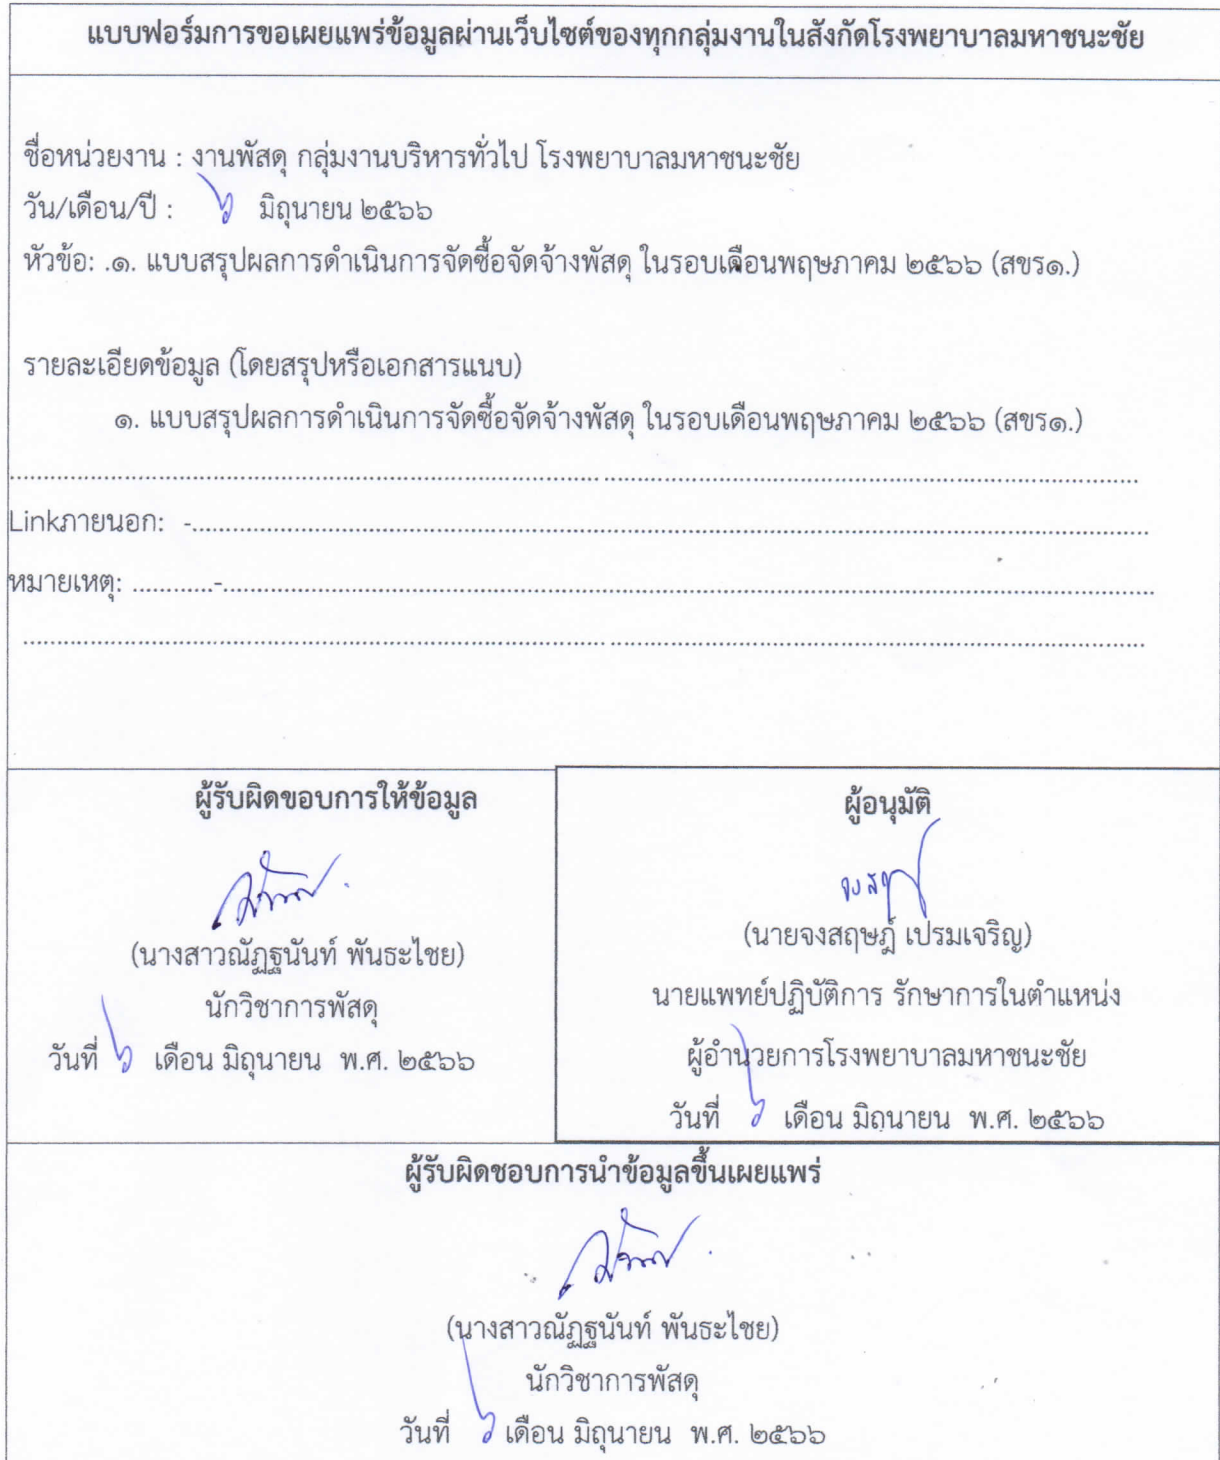 แบบฟอร์มการขอเผยแพร่ข้อมูลผ่านเว็บไซต์ของทุกกลุ่มงานในสังกัดโรงพยาบาลมหาชนะชัย
ชื่อหน่วยงาน : งานพัสดุ กลุ่มงานบริหารทั่วไป โรงพยาบาลมหาชนะชัย
วัน/เดือน/ปี : ๖ มิถุนายน ๒๕๖๖
หัวข้อ: .๑. แบบสรุปผลการดำเนินการจัดซื้อจัดจ้างพัสดุ ในรอบเดือนพฤษภาคม ๒๕๖๖ (สขร๑.)
รายละเอียดข้อมูล (โดยสรุปหรือเอกสารแนบ)
๑. แบบสรุปผลการดำเนินการจัดซื้อจัดจ้างพัสดุ ในรอบเดือนพฤษภาคม ๒๕๖๖ (สขร๑.)
Linkภายนอก: -
หมายเหตุ: ............-
ผู้รับผิดขอบการให้ข้อมูล
(นางสาวณัฏฐนันท์ พันธะไชย)
นักวิชาการพัสดุ
วันที่ ๖ เดือน มิถุนายน พ.ศ. ๒๕๖๖
ผู้อนุมัติ
จงสฤษ
(นายจงสฤษฎ์ เปรมเจริญ)
นายแพทย์ปฏิบัติการ รักษาการในตำแหน่ง
ผู้อำนวยการโรงพยาบาลมหาชนะชัย
วันที่ ๖ เดือน มิถุนายน พ.ศ. ๒๕๖๖
ผู้รับผิดชอบการนำข้อมูลขึ้นเผยแพร่
(นางสาวณัฏฐนันท์ พันธะไชย)
นักวิชาการพัสดุ
วันที่ ๖ เดือน มิถุนายน พ.ศ. ๒๕๖๖